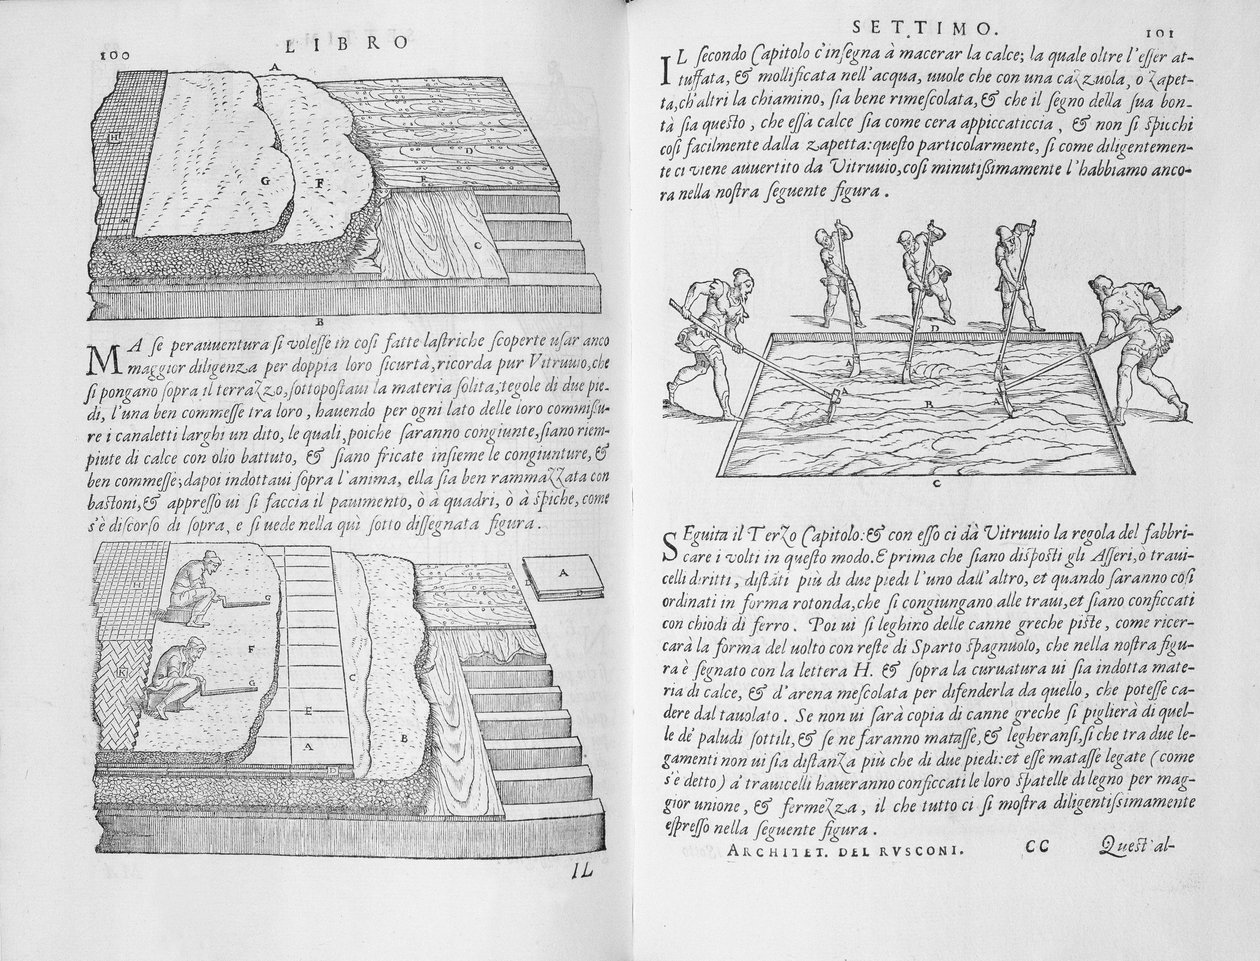 100
LIBRO
A
H
G
F
D
E
C
B
MA se perauuentura si volesse in cosi fatte lastriche scoperte usar anco
maggior diligenza per doppia loro sicurtà, ricorda pur Vitruuio, che
si pongano sopra il terrazzo, sottopostaui la materia solita; tegole di due pie-
di, l'una ben commesse tra loro, hauendo per ogni lato delle loro commissu-
re i canaletti larghi un dito, le quali, poiche saranno congiunte, siano riem-
piute di calce con olio battuto, & siano fricate insieme le congiunture, &
ben commesse; dapoi indottaui sopra l'anima, ella sia ben rammazzata con
bastoni, & appresso ui si faccia il pauimento, ò à quadri, ò à spiche, come
s'è discorso di sopra, e si uede nella quì sotto dissegnata figura.
A
D
G
F
K
G
C
E
B
A
D
IL
SETTIMO.
101
IL secondo Capitolo c'insegna à macerar la calce; la quale oltre l'esser at-
tuffata, & mollificata nell'acqua, uuole che con una cazzuola, o zapet-
ta, ch'altri la chiamino, sia bene rimescolata, & che il segno della sua bon-
tà sia questo, che essa calce sia come cera appiccaticcia, & non si spicchi
cosi facilmente dalla zapetta: questo particolarmente, si come diligentemen-
te ci viene auuertito da Vitruuio, cosi minutissimamente l'habbiamo anco-
ra nella nostra seguente figura.
D
A
A
B
C
SEguita il Terzo Capitolo: & con esso ci dà Vitruuio la regola del fabbri-
care i volti in questo modo. E prima che siano disposti gli Asseri, ò traui-
celli diritti, distāti più di due piedi l'uno dall'altro, et quando saranno cosi
ordinati in forma rotonda, che si congiungano alle traui, et siano conficcati
con chiodi di ferro. Poi ui si leghino delle canne greche piste, come ricer-
carà la forma del uolto con reste di Sparto spagnuolo, che nella nostra figu-
ra è segnato con la lettera H. & sopra la curuatura ui sia indotta mate-
ria di calce, & d'arena mescolata per difenderla da quello, che potesse ca-
dere dal tauolato. Se non ui sarà copia di canne greche si piglierà di quel-
le de' paludi sottili, & se ne faranno matasse, & legheransi, si che tra due le-
gamenti non ui sia distanza più che di due piedi: et esse matasse legate (come
s'è detto) a' trauicelli haueranno conficcati le loro spatelle di legno per mag-
gior unione, & fermezza, il che tutto ci si mostra diligentissimamente
espresso nella seguente figura.
ARCHITET. DEL RVSCONI.
CC
Quest'al-